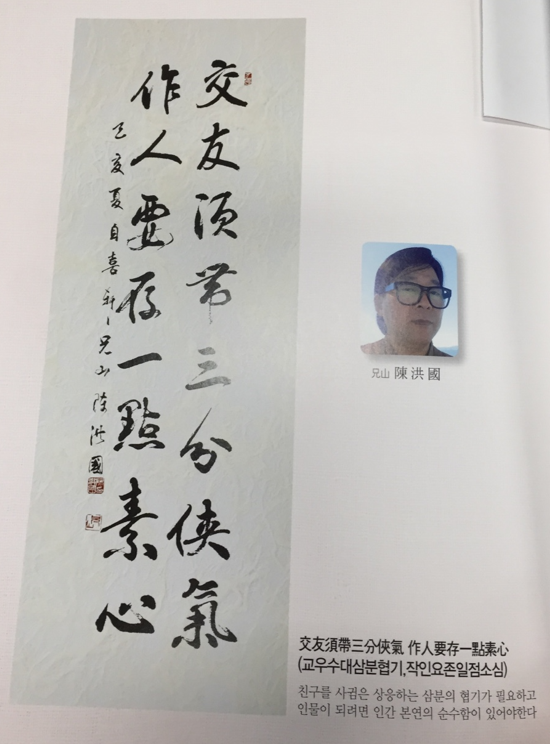 交友須帶三分俠氣
作人要存一點素心
己亥夏自喜軒 兄山 陳洪國
兄山 陳洪國
交友須帶三分俠氣 作人要存一點素心
(교우수대삼분협기,작인요존일점소심)
친구를 사귐은 상응하는 삼분의 협기가 필요하고
인물이 되려면 인간 본연의 순수함이 있어야한다